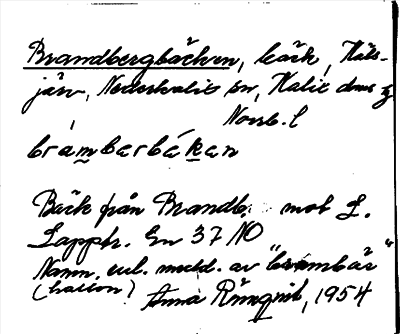 Brandbergbäcken, bäck, Häls-
järv, Nederkalix sn, Kalix dms
Norrb. l
bràmbarbä́kan
Bäck från Brandb. mot L.
Lapptr. En 37 NO
Namn. enl. medd. av "brambär"
(hallon) Anna Rönnqvist, 1954